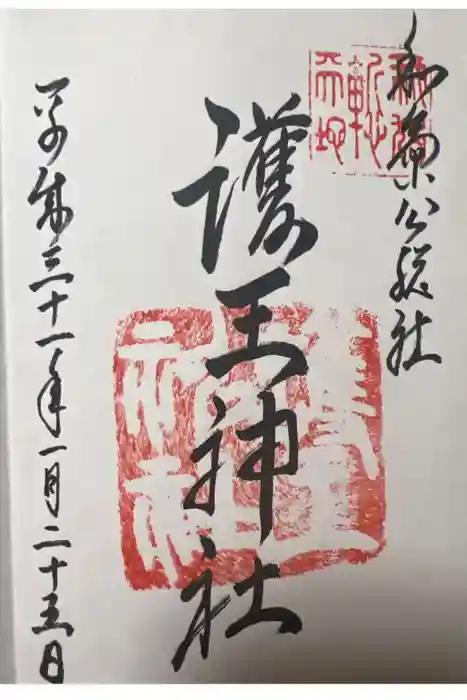 和気公総社
護王神社
平成三十一年一月二十五日
護王神社